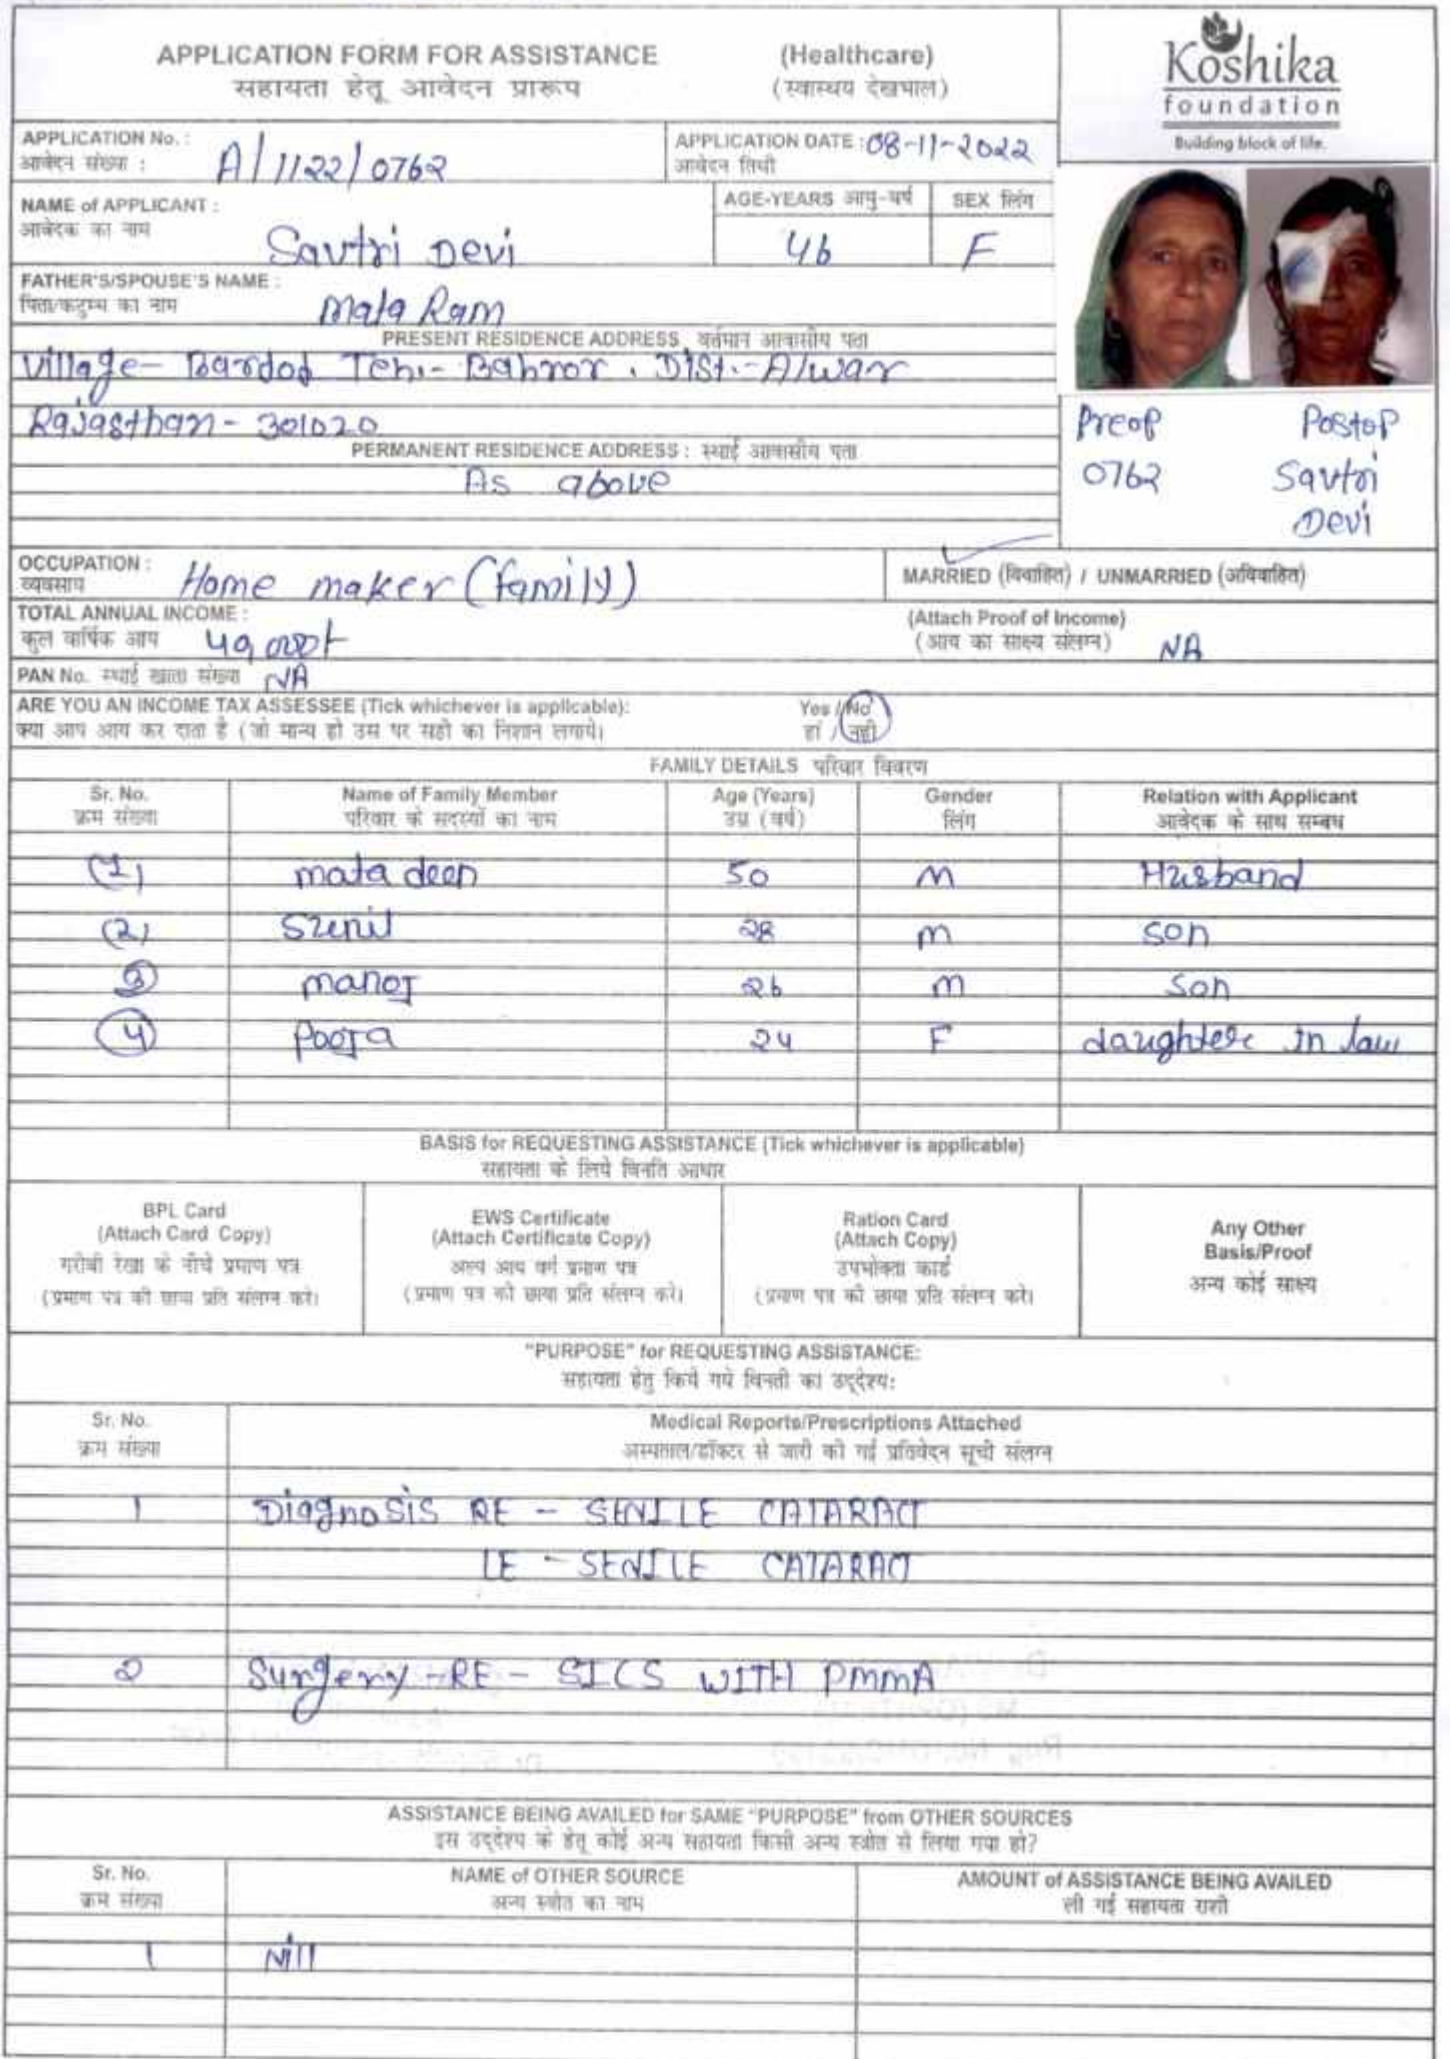 APPLICATION FORM FOR ASSISTANCE (Healthcare)
सहायता हेतू आवेदन प्रारूप (स्वास्थय देखभाल)
Koshika
foundation
Building block of life.
APPLICATION No. : A/1122/0762
आवेदन संख्या :
APPLICATION DATE : 08-11-2022
आवेदन तिथी
NAME of APPLICANT : Savtri Devi
आवेदक का नाम
AGE-YEARS आयु-वर्ष 46
SEX लिंग F
FATHER'S/SPOUSE'S NAME : Mata Ram
पिता/कटुम्ब का नाम
PRESENT RESIDENCE ADDRESS वर्तमान आवासीय पता
Village- Bardod Teh.- Bahror . Dist.- Alwar
Rajasthan - 301020
PERMANENT RESIDENCE ADDRESS : स्थाई आवासीय पता
As above
Preop Postop
0762 Savtri
Devi
OCCUPATION : Home maker (family)
व्यवसाय
MARRIED (विवाहित) / UNMARRIED (अविवाहित)
TOTAL ANNUAL INCOME :
कुल वार्षिक आय
(Attach Proof of Income)
(आय का साक्ष्य संलग्न) NA
PAN No. स्थाई खाता संख्या NA
ARE YOU AN INCOME TAX ASSESSEE (Tick whichever is applicable): Yes / No
क्या आप आय कर दाता है (जो मान्य हो उस पर सही का निशान लगाये। हां / नही
FAMILY DETAILS परिवार विवरण
Sr. No. Name of Family Member Age (Years) Gender Relation with Applicant
क्रम संख्या परिवार के सदस्यों का नाम उम्र (वर्ष) लिंग आवेदक के साथ सम्बध
(1) mata deen 50 M Husband
(2) Sunil 28 m son
3 manoj 26 m Son
4 Pooja 24 F daughter in law
BASIS for REQUESTING ASSISTANCE (Tick whichever is applicable)
सहायता के लिये विनति आधार
BPL Card
(Attach Card Copy)
गरीबी रेखा के नीचे प्रमाण पत्र
(प्रमाण पत्र की छाया प्रति संलग्न करे।
EWS Certificate
(Attach Certificate Copy)
अल्प आय वर्ग प्रमाण पत्र
(प्रमाण पत्र की छाया प्रति संलग्न करे।
Ration Card
(Attach Copy)
उपभोक्ता कार्ड
(प्रमाण पत्र की छाया प्रति संलग्न करे।
Any Other
Basis/Proof
अन्य कोई साक्ष्य
"PURPOSE" for REQUESTING ASSISTANCE:
सहायता हेतु किये गये विनती का उद्देश्य:
Sr. No. Medical Reports/Prescriptions Attached
क्रम संख्या अस्पताल/डॉक्टर से जारी की गई प्रतिवेदन सूची संलग्न
1 Diagnosis RE - SENILE CATARACT
LE - SENILE CATARACT
2 Surgery - RE - SICS WITH PMMA
ASSISTANCE BEING AVAILED for SAME "PURPOSE" from OTHER SOURCES
इस उद्देश्य के हेतू कोई अन्य सहायता किसी अन्य स्त्रोत से लिया गया हो?
Sr. No. NAME of OTHER SOURCE AMOUNT of ASSISTANCE BEING AVAILED
क्रम संख्या अन्य स्त्रोत का नाम ली गई सहायता राशी
1 Nill